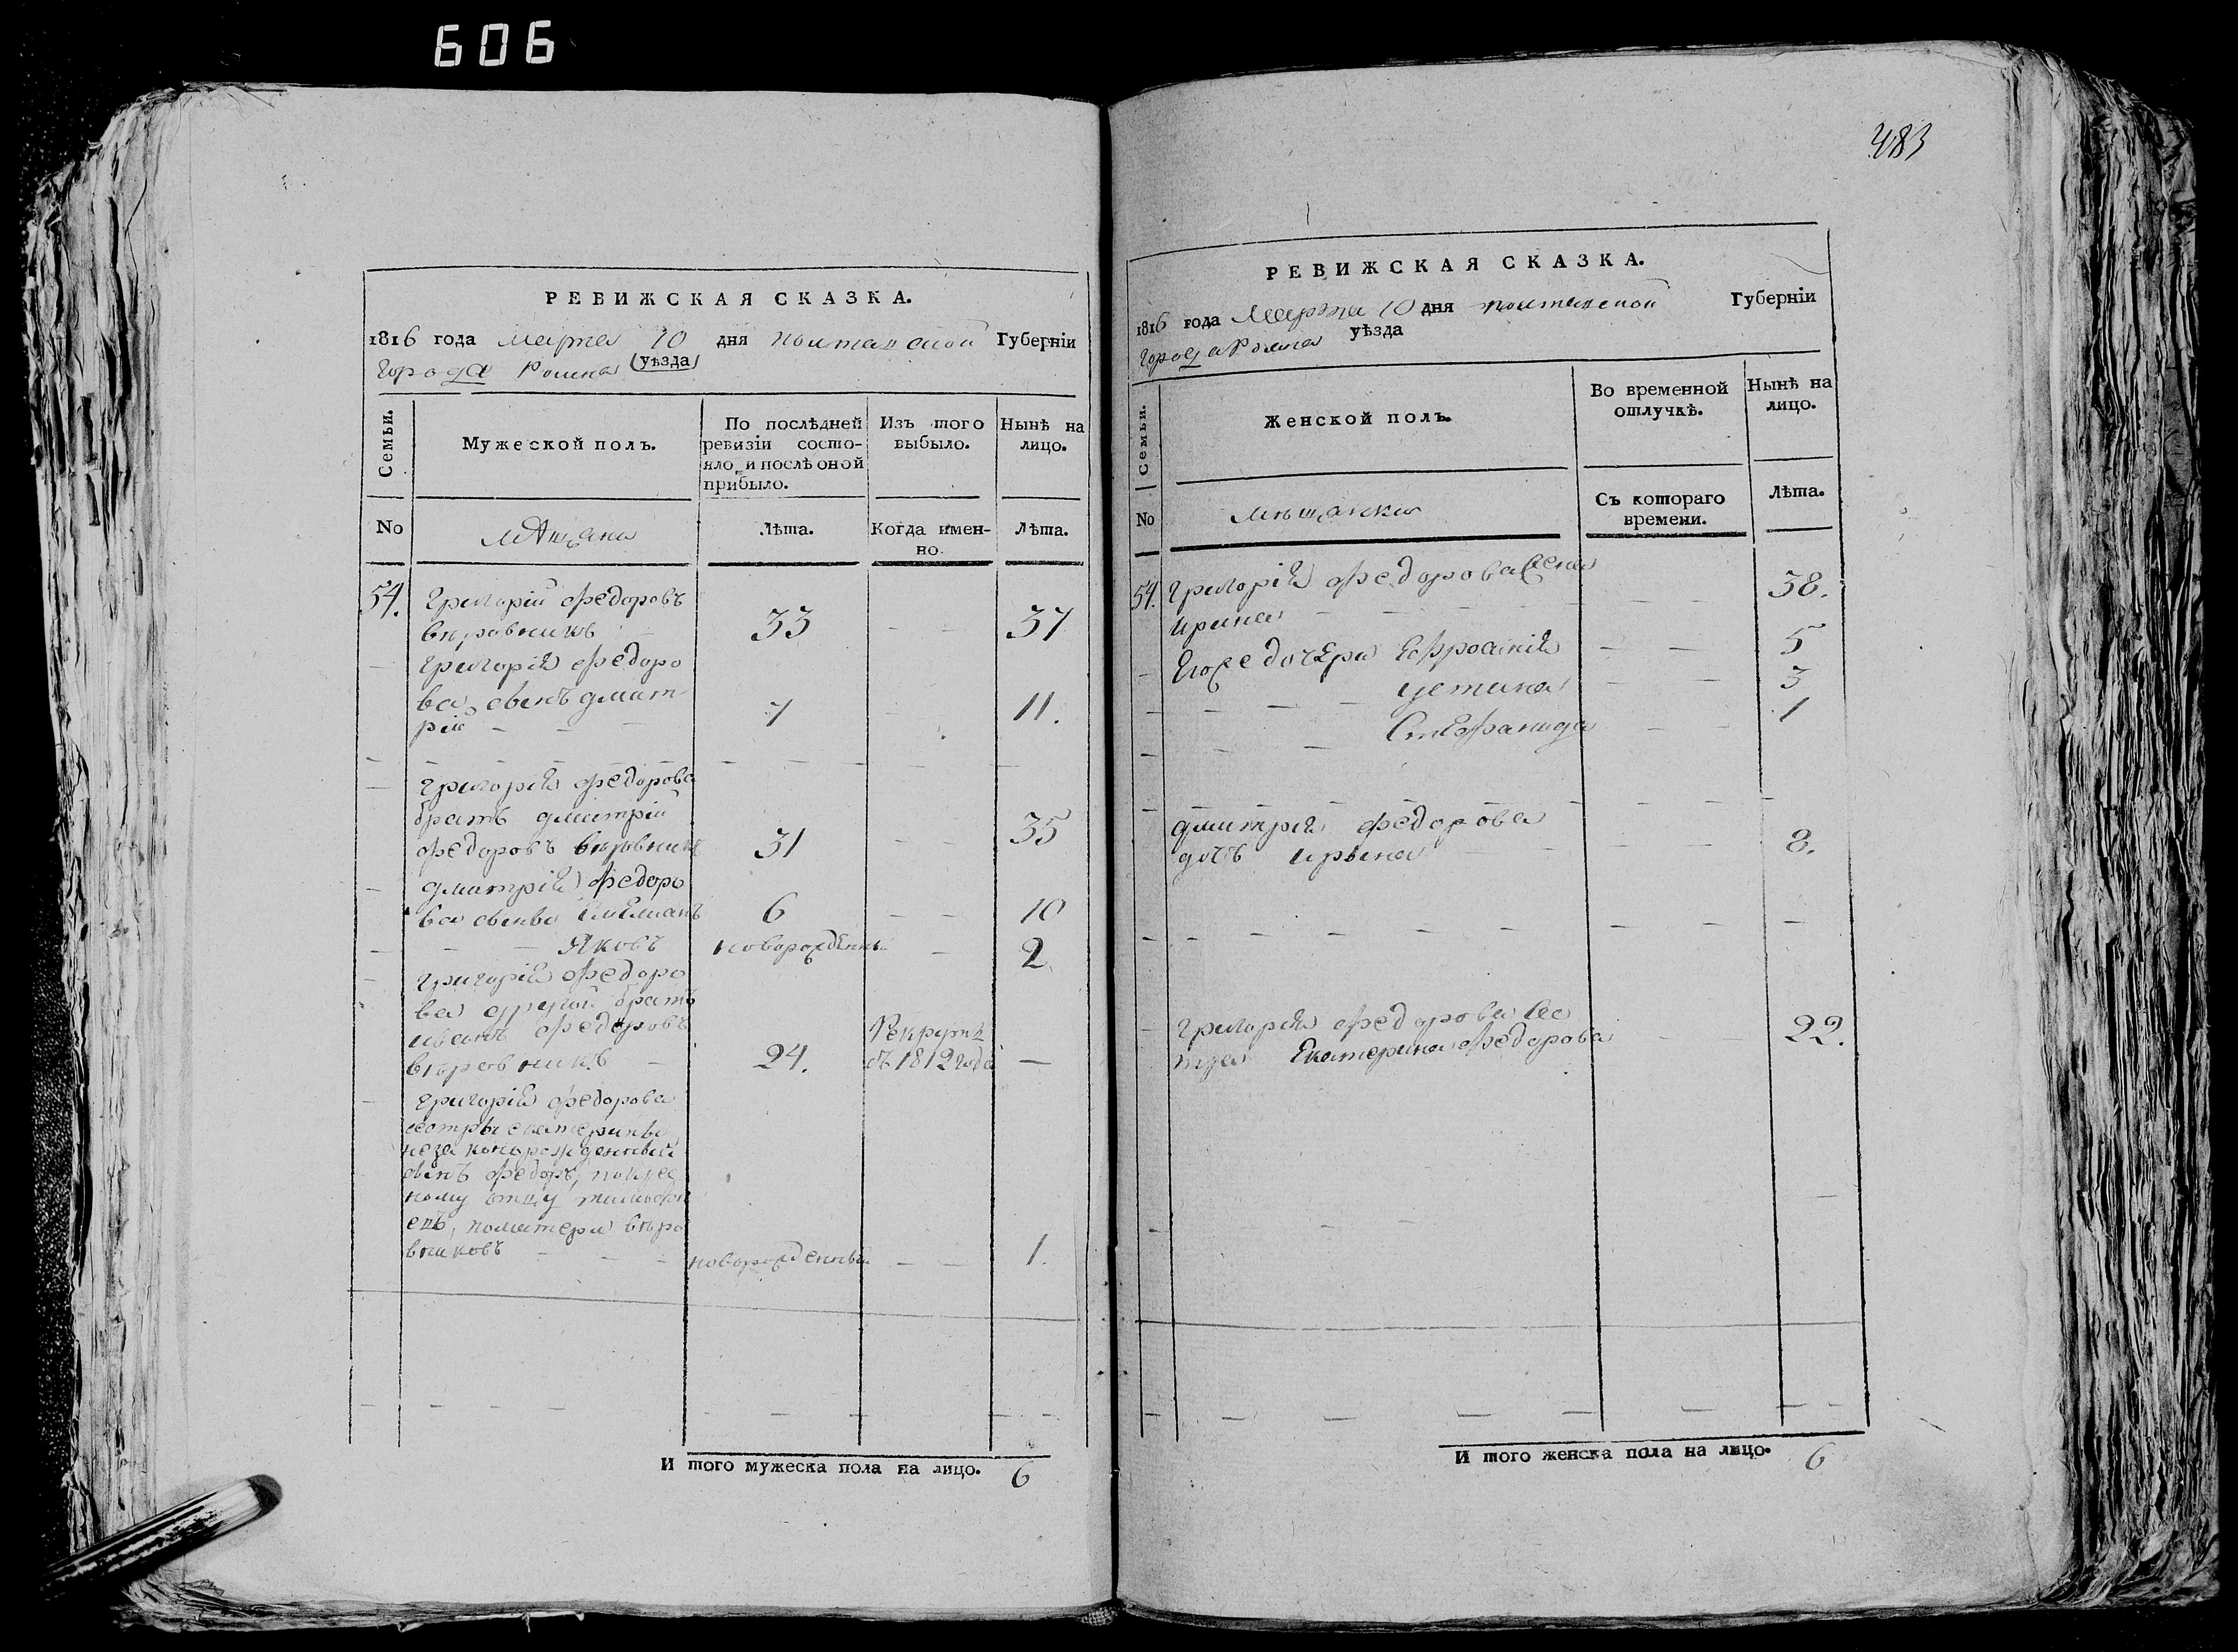 606
РЕВИЖСКАЯ СКАЗКА.
1816 года марта 10 дня полтавской Губерніи
города Ромна уѣзда
Семьи.
Мужеской полъ.
По послѣдней ревизіи состо-
яло, и послѣ оной
прибыло.
Изъ того
выбыло.
Нынѣ на
лицо.
No
мѣщане
Лѣта.
Когда имен-
но.
Лѣта.
54. Григорій Федоровъ
вѣровникъ 33 — — 37
— Григорія Федоро
ва сынъ дмит
рій — — 7 — 11.
— Григорія Федорова
братъ дмитрій
Федоровъ вѣровникъ 31 — — 35
— дмитрія Федоро
ва сынъ Емелианъ 6 — — 10
— — — Яковъ новорожденны — 2
— Григорія Федоро
ва другой братъ
иванъ Федоровъ Рекрутъ
вѣровникъ — 24. съ 1812 года —
— Григорія Федорова
сестры екатерины
незаконорожденный
сынъ Федоръ,
ному отцу
енъ, поматери вѣро
вниковъ — — — новорожденный — — 1.
И того мужеска пола на лицо. 6
483
РЕВИЖСКАЯ СКАЗКА.
1816 года Марта 10 дня полтавской Губерніи
города Ромна уѣзда
Семьи.
Женской полъ.
Во временной
отлучкѣ.
Нынѣ на
лицо.
No
мѣщанки
Съ котораго
времени.
Лѣта.
54. Григорія Федорова жена
ирина — — — — 38.
— Егоже дочери Ефросинія — — 5
— — — — устина — — 3
— — — Стефанида — — 1
дмитрія Федорова
дочъ ирына — — — — 8.
— Григорія Федорова сес
тра Екатерина Федорова — — 22.
И того женска пола на лицо. 6